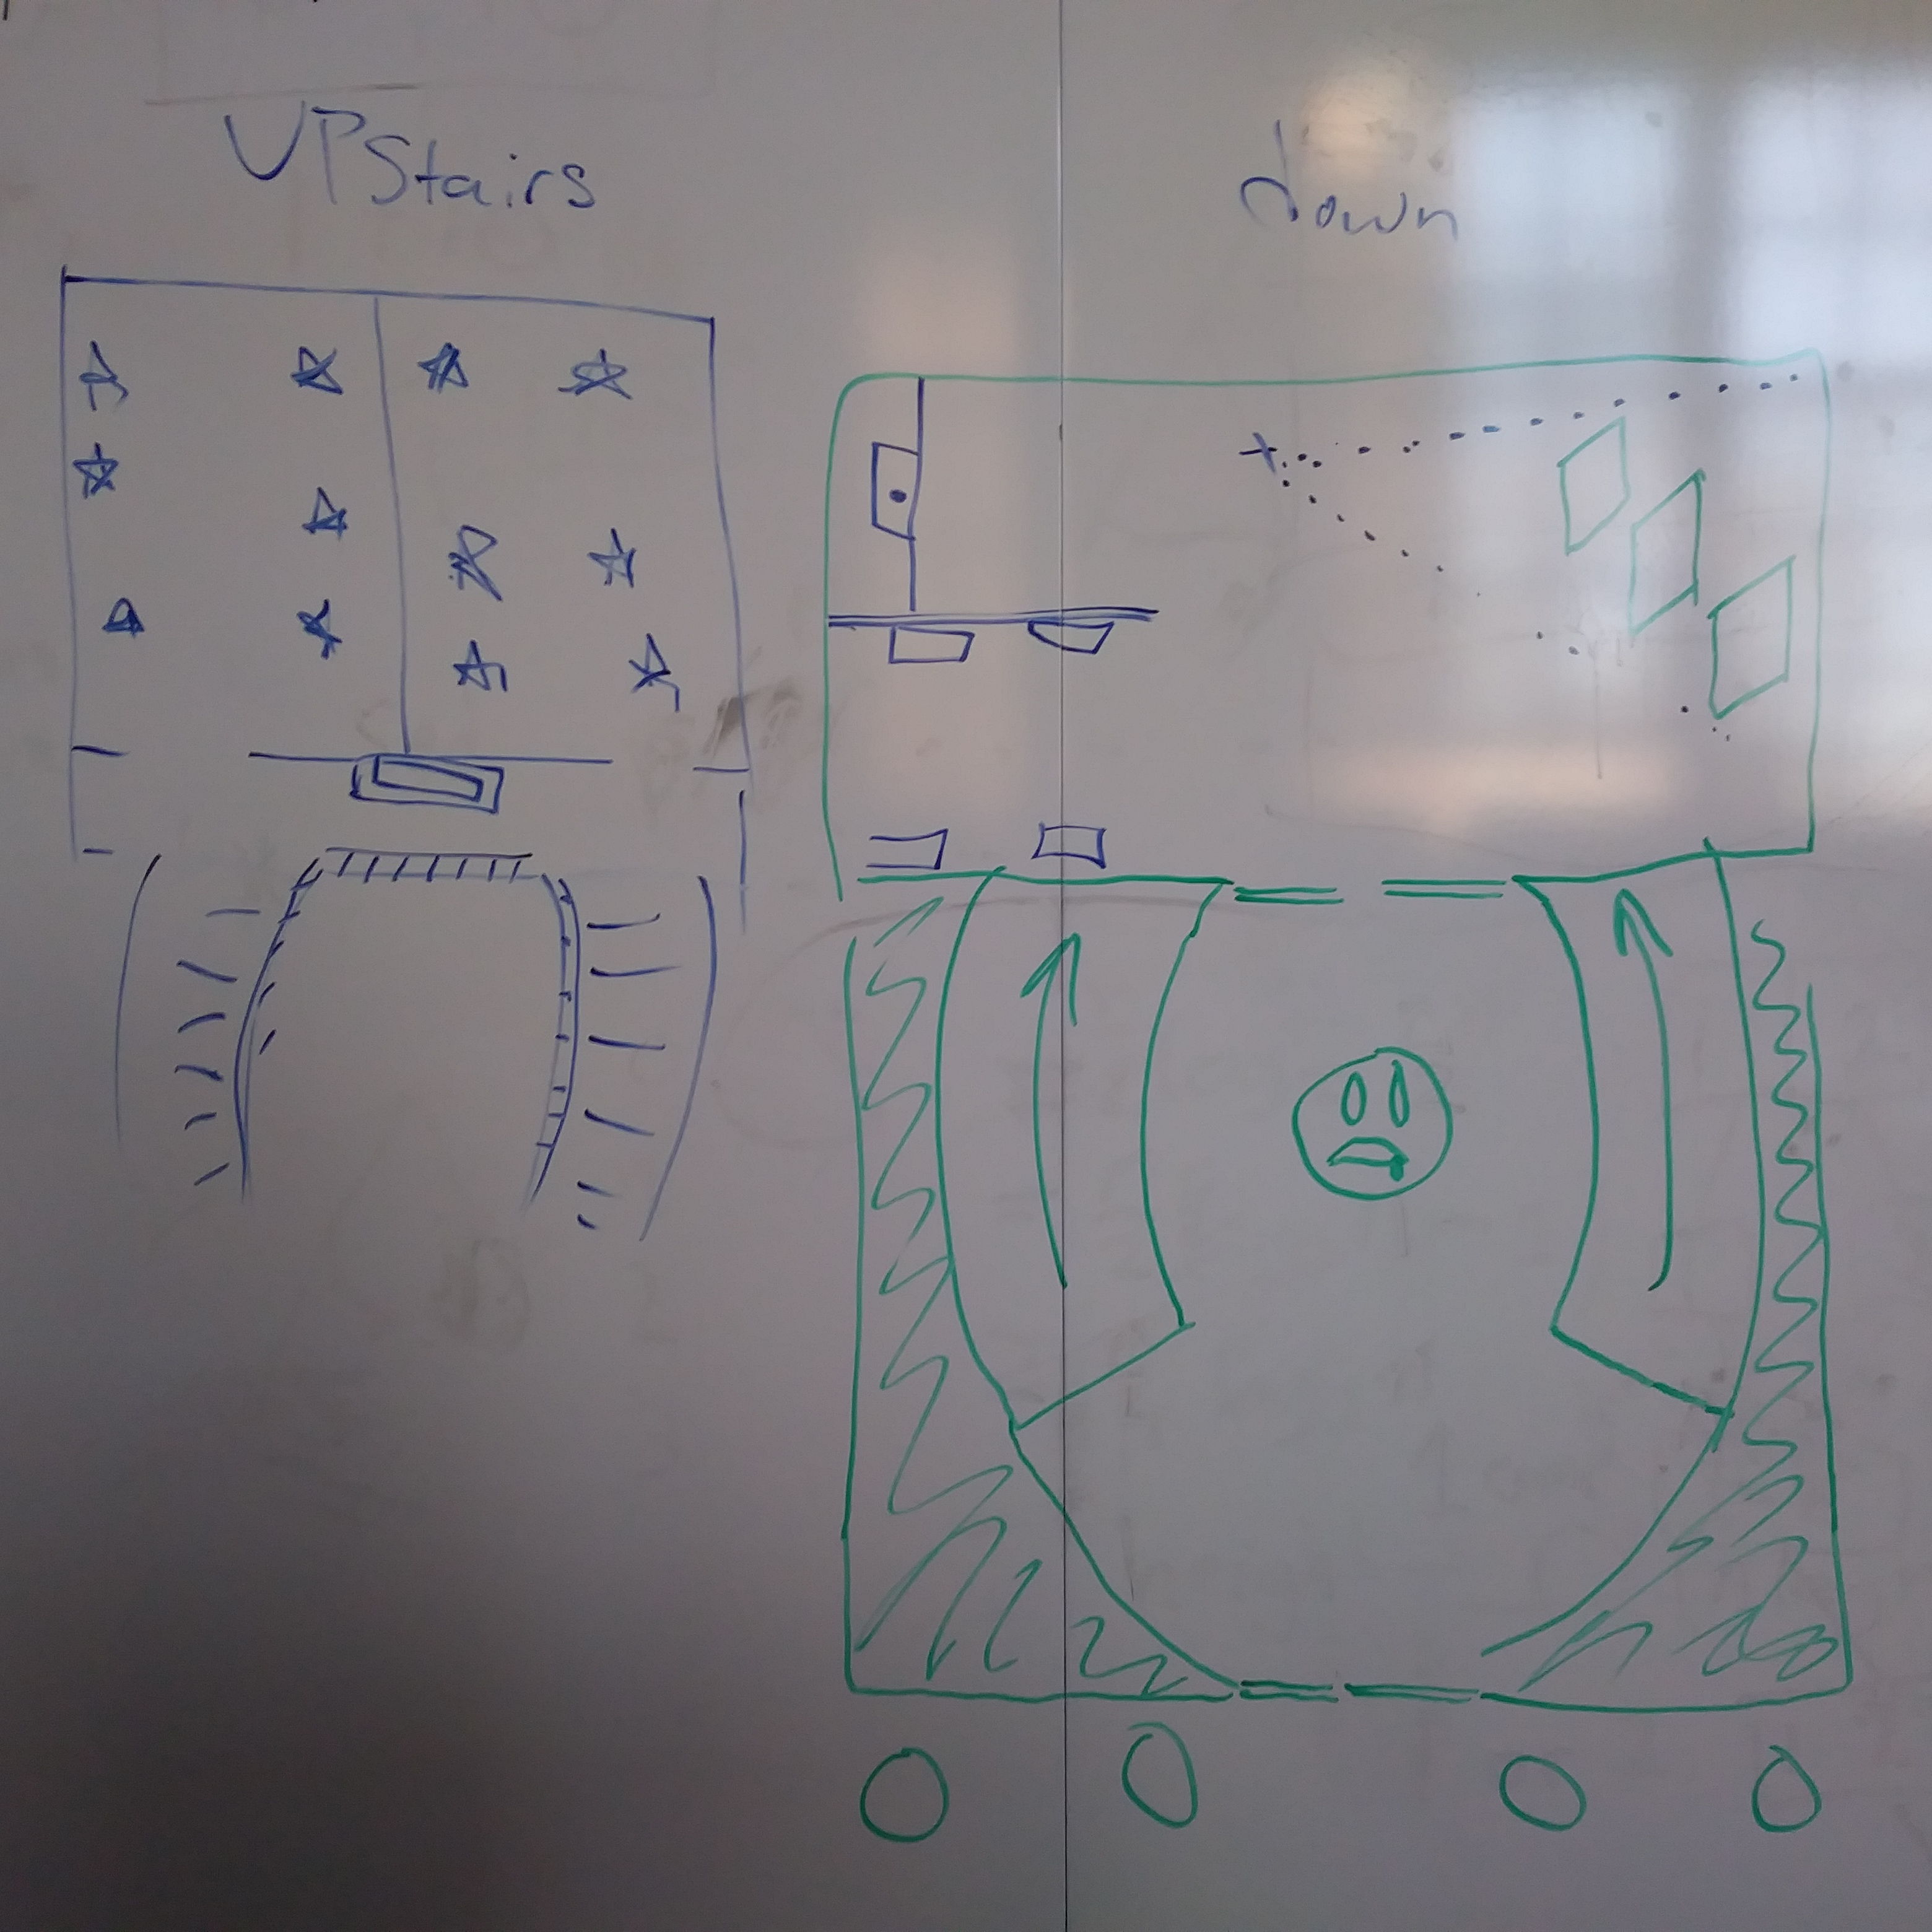 UPStairs
down